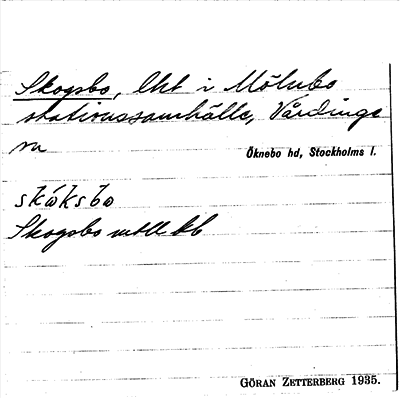 Skogsbo, lht i Mölnbo
stationssamhälle, Vårdinge
sn
Öknebo hd, Stockholms l.
skóksbo
Skogsbo
GÖRAN ZETTERBERG 1935.